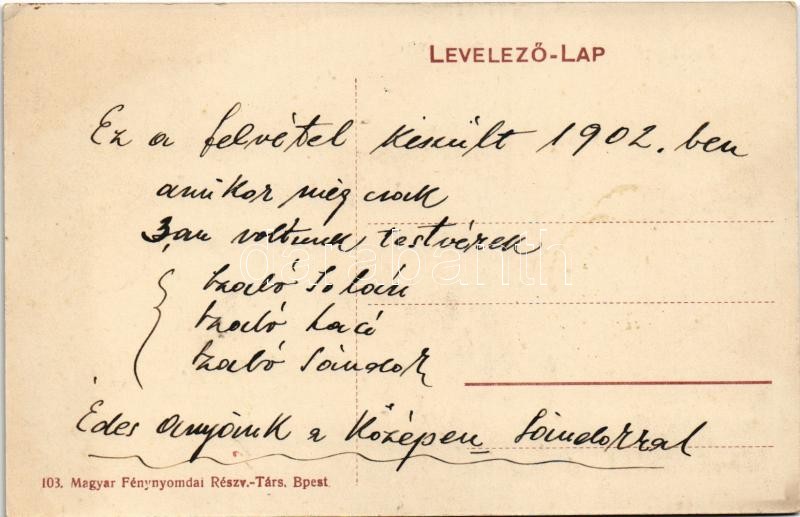 LEVELEZŐ-LAP
Ez a felvétel készült 1902.ben
amikor még csak
3an voltunk testvérek
Szabó Zoltán
Szabó Laci
Szabó Sándor
Édes anyánk a középen Sándorral
darabanth
103. Magyar Fénynyomdai Részv.-Társ. Bpest.